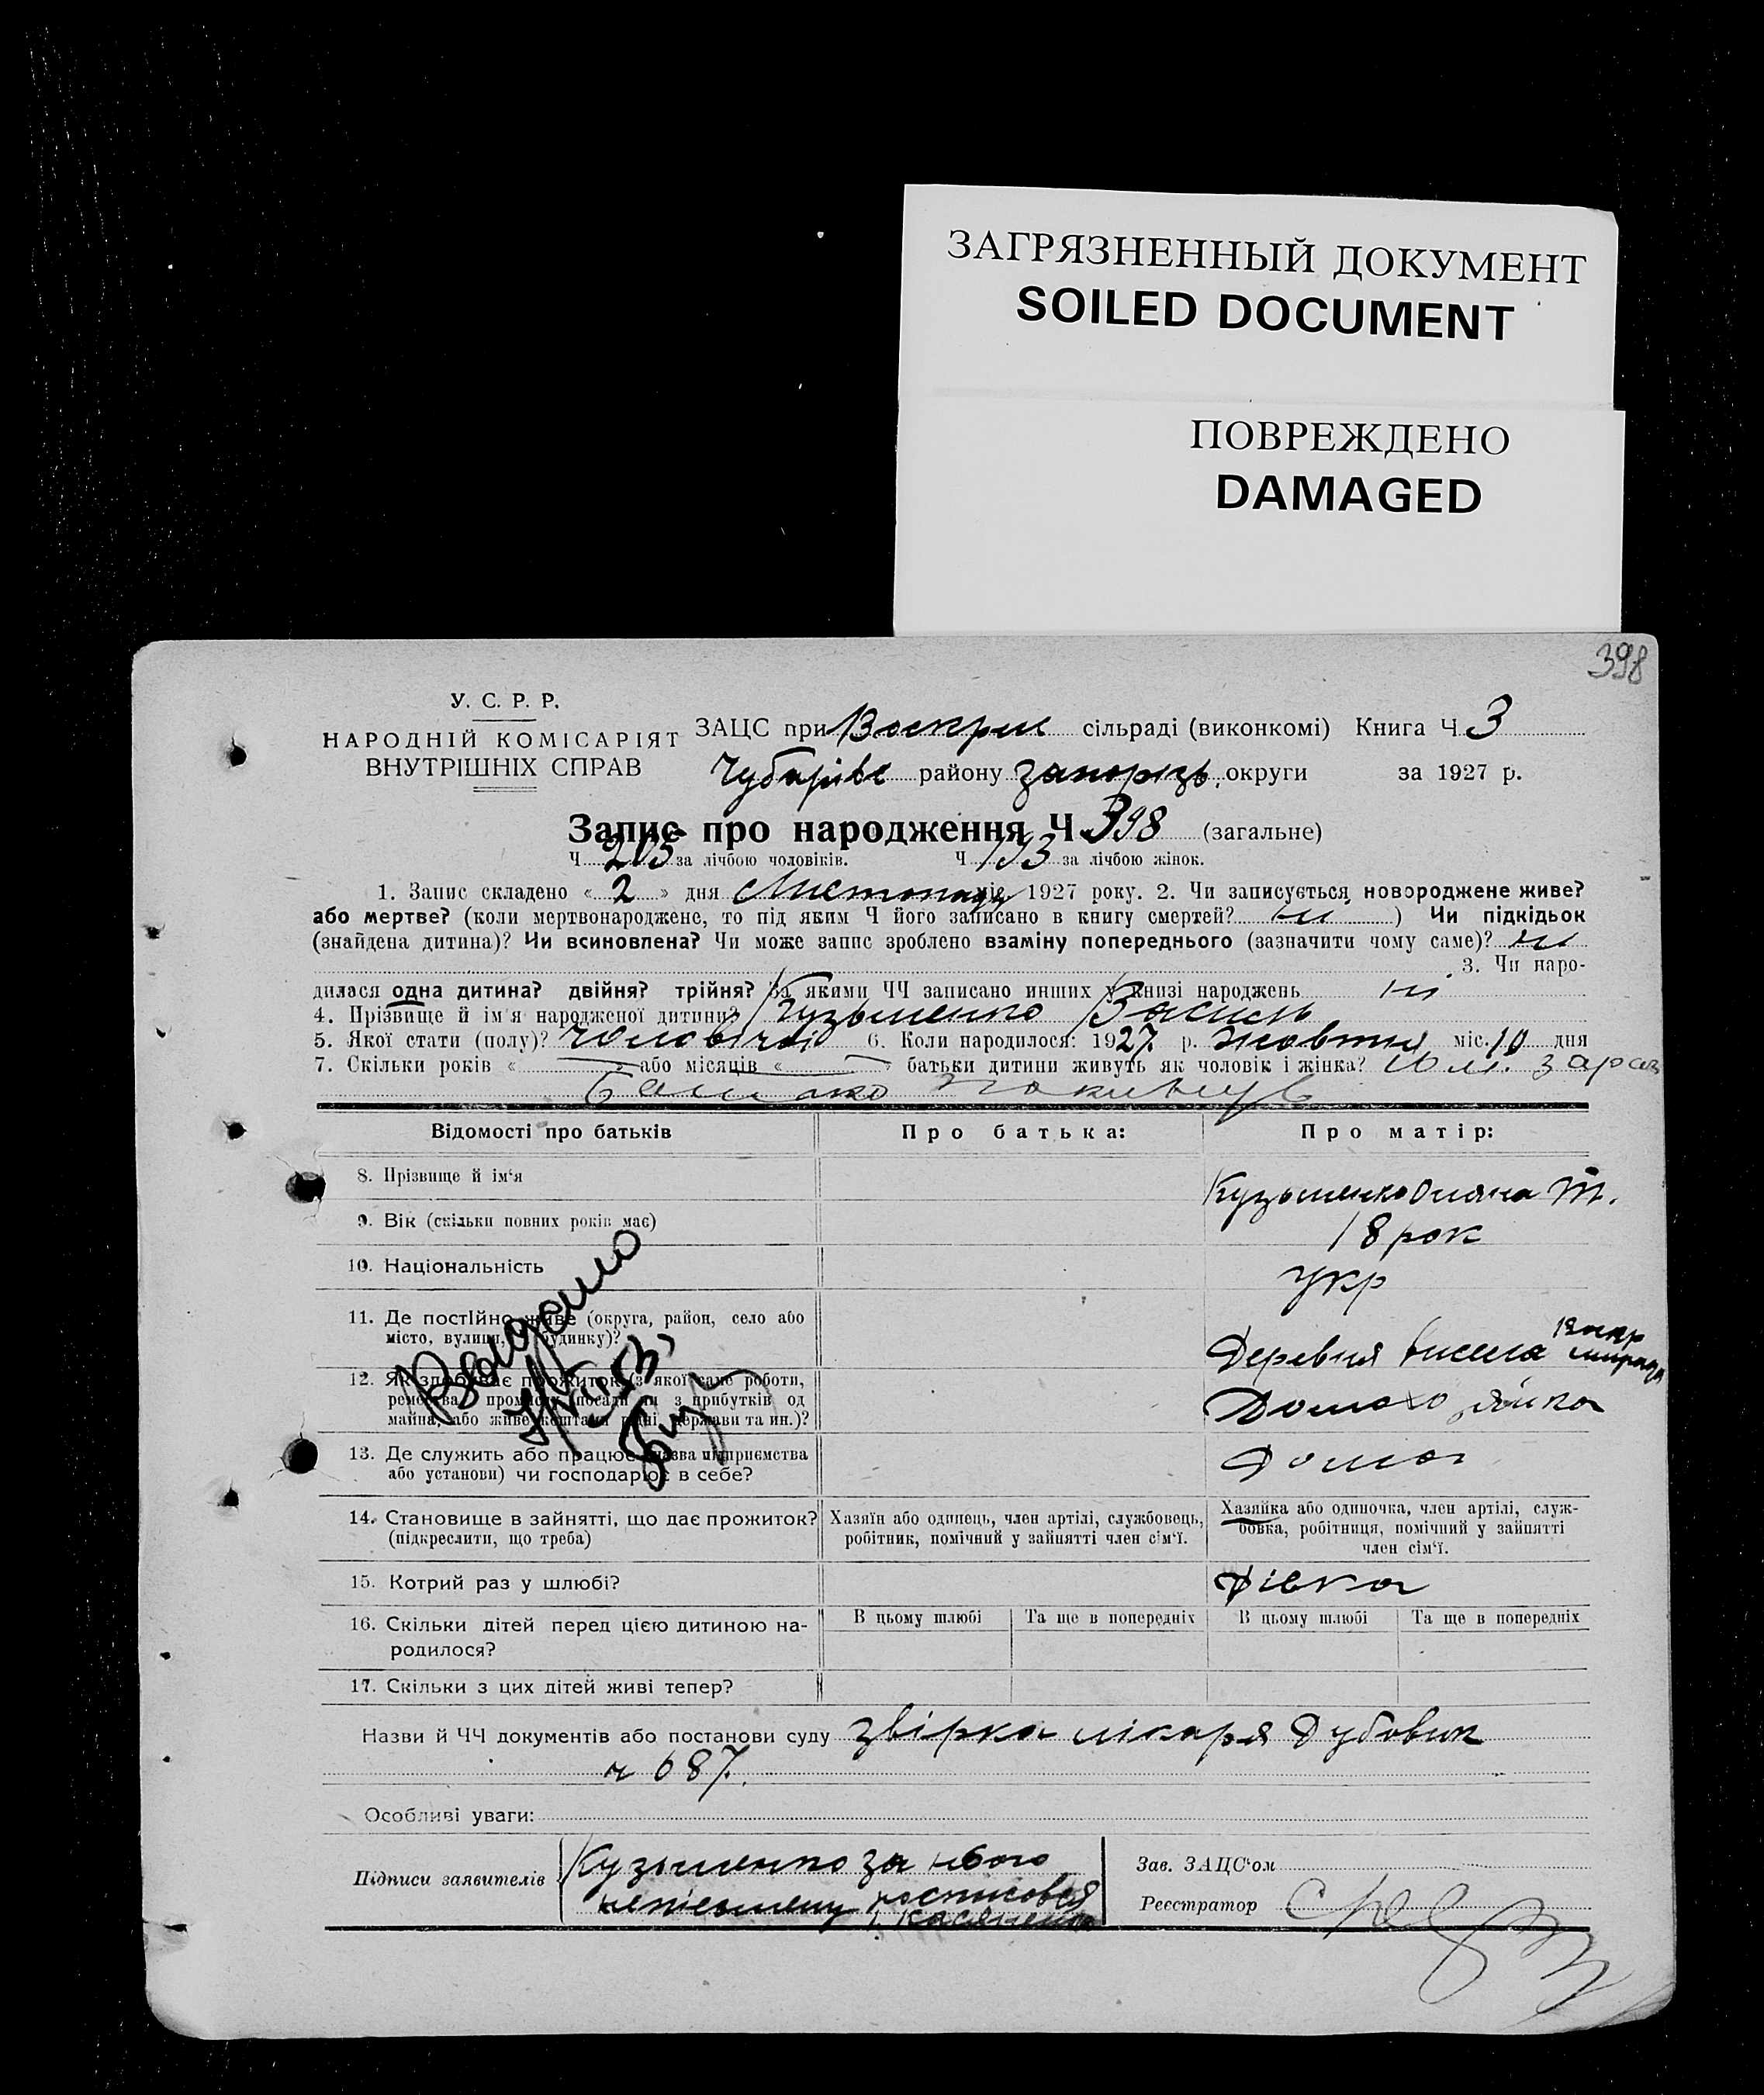 ЗАГРЯЗНЕННЫЙ ДОКУМЕНТ
SOILED DOCUMENT
ПОВРЕЖДЕНО
DAMAGED
398
У. С. Р. Р.
НАРОДНІЙ КОМІСАРІЯТ
ВНУТРІШНІХ СПРАВ
ЗАЦС при Воскрес сільраді (виконкомі) Книга Ч 3
Чубарівс району запорізь. округи за 1927 р.
Запис про народження Ч 398 (загальне)
Ч 205 за лічбою чоловіків. Ч 193 за лічбою жінок.
1. Запис складено « 2 » дня Листопаду міс. 1927 року. 2. Чи записується новороджене живе?
або мертве? (коли мертвонароджене, то під яким Ч його записано в книгу смертей? ні ) Чи підкідьок
(знайдена дитина)? Чи всиновлена? Чи може запис зроблено взаміну попереднього (зазначити чому саме)? ні
3. Чи наро-
дилася одна дитина? двійня? трійня? За якими ЧЧ записано инших у книзі народжень ні
4. Прізвище й ім'я народженої дитини? Кузьменко Василь
5. Якої стати (полу)? чоловічої 6. Коли народилося: 1927. р. жовтня міс. 10 дня
7. Скільки років « » або місяців « » батьки дитини живуть як чоловік і жінка? 10 м. зараз
батько покинув
Відомості про батьків Про батька: Про матір:
8. Прізвище й ім'я Кузьменко Оляна Т.
9. Вік (скільки повних років має) 18 рок
10. Національність укр
11. Де постійно живе (округа, район, село або
місто, вулиця, будинку)? Деревня
12. Як здобуває прожиток (з якої саме роботи,
ремества, промислу, посади чи з прибутків од
майна, або живе коштами рідні, держави та ин.)? Домохозяйка
13. Де служить або працює (назва підприємства
або установи) чи господарює в себе? Дома
14. Становище в зайнятті, що дає прожиток?
(підкреслити, що треба)
Хазяїн або одинець, член артілі, службовець,
робітник, помічний у зайнятті член сім'ї.
Хазяйка або одиночка, член артілі, служ-
бовка, робітниця, помічний у зайнятті
член сім'ї.
15. Котрий раз у шлюбі? Дівка
16. Скільки дітей перед цією дитиною на-
родилося?
В цьому шлюбі Та ще в попередніх В цьому шлюбі Та ще в попередніх
17. Скільки з цих дітей живі тепер?
Назви й ЧЧ документів або постанови суду звірка лікаря Дубовик
ч 687.
Особливі уваги:
Підписи заявителів Кузьменко за його
неписьмену росписовся
Касяненко
Зав. ЗАЦС'ом
Реєстратор